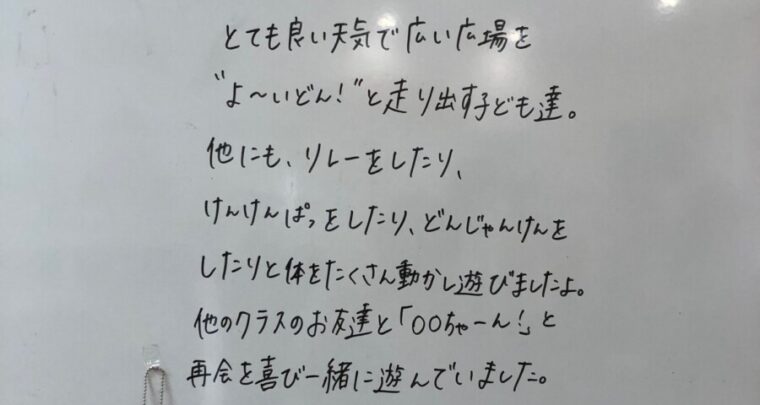 とても良い天気で広い広場を
"よ〜いどん！"と走り出す子ども達。
他にも、リレーをしたり、
けんけんぱっをしたり、どんじゃんけんを
したりと体をたくさん動かし遊びましたよ。
他のクラスのお友達と「○○ちゃーん！」と
再会を喜び一緒に遊んでいました。